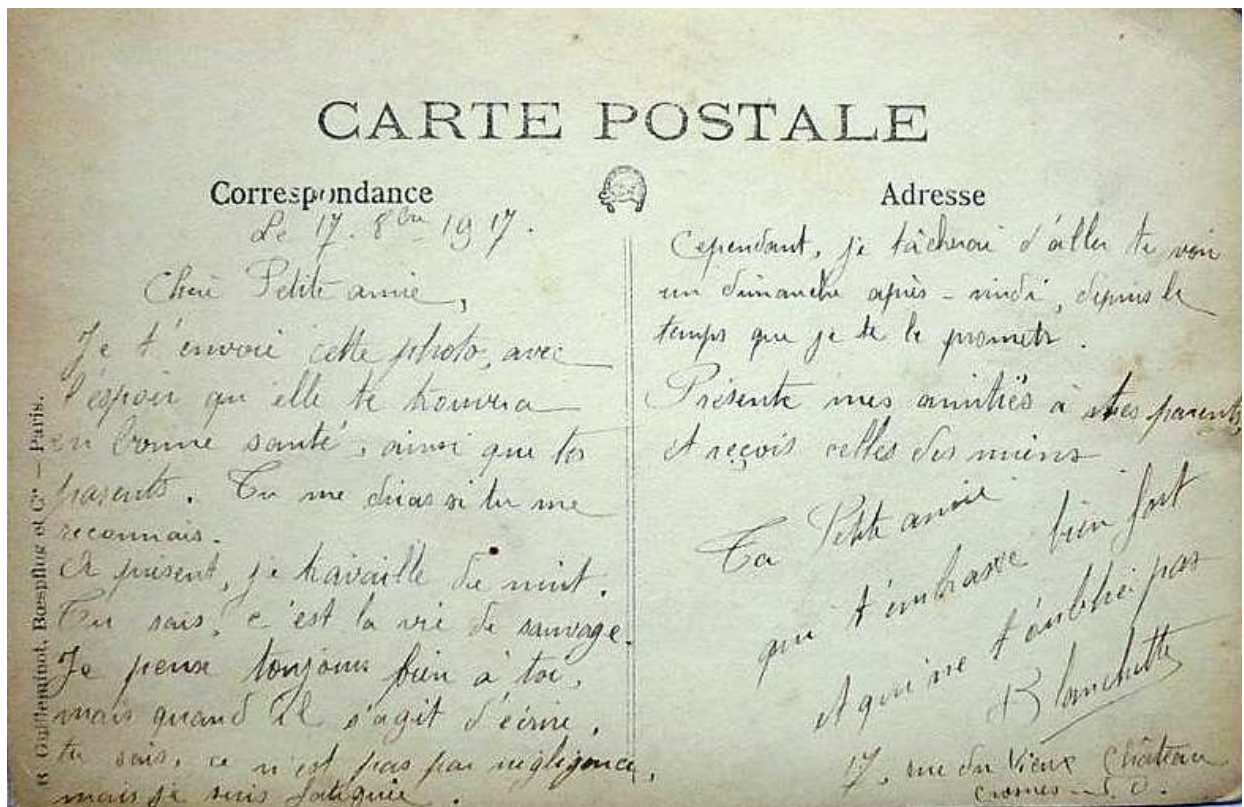 CARTE POSTALE
Correspondance
Le 17. 8bre 1917.
Chère Petite amie,
Je t'envoie cette photo, avec
l'espoir qu'elle te trouvera
en bonne santé, ainsi que tes
parents. Tu me diras si tu me
reconnais.
A présent, je travaille de nuit.
Tu sais, c'est la vie de sauvage.
Je pense toujours bien à toi,
mais quand il s'agit d'écrire,
tu sais, ce n'est pas par négligence,
mais je suis fatiguée.
Adresse
Cependant, je tâcherai d'aller te voir
un dimanche après-midi, depuis le
temps que je te le promets.
Présente mes amitiés à tes parents,
et reçois celles des miens.
Ta Petite amie
qui t'embrasse bien fort
et qui ne t'oublie pas
Blanchette
17, rue du Vieux Château
Crosnes - S. O.
R. Guilleminot, Bœspflug et Cie. — Paris.